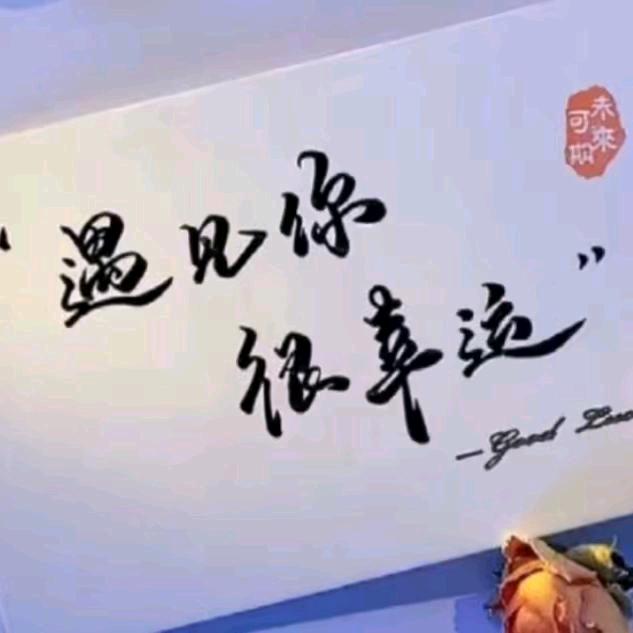 “遇见你
很幸运”
—Good
未來
可期